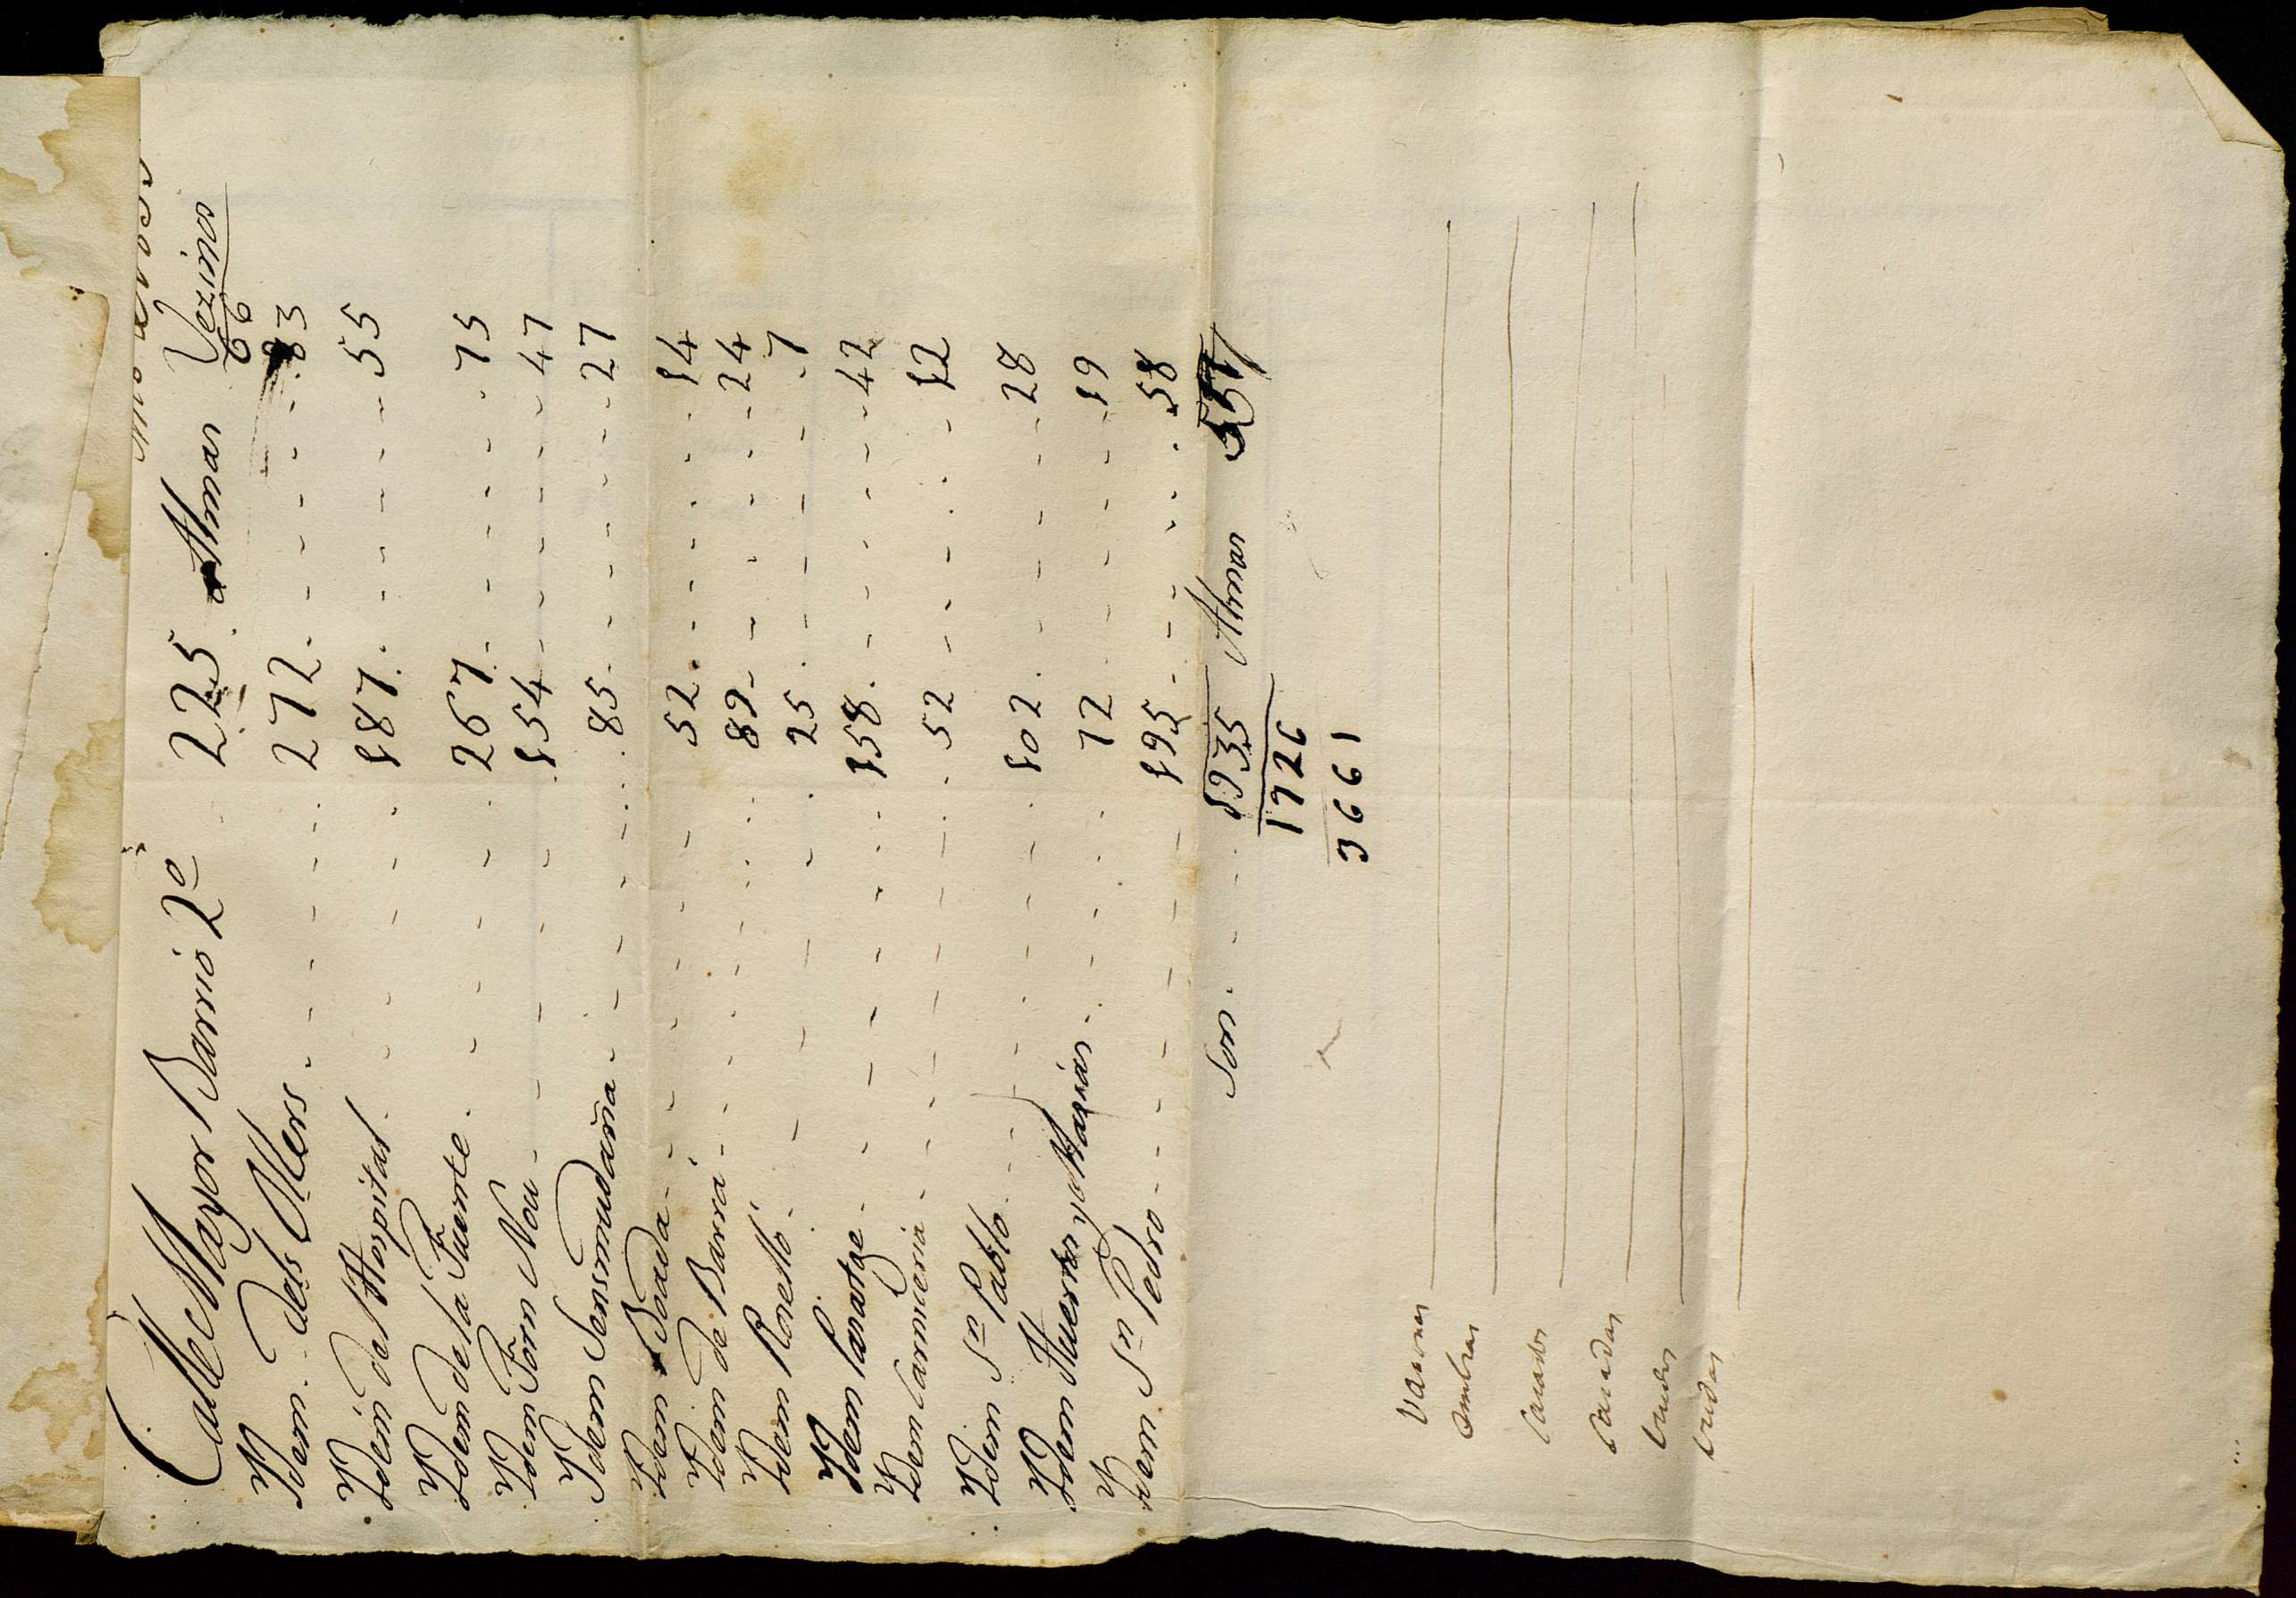 Calle Mayor Barrio 2º 225 Almas Vezinos 66
Idem dels Ollers 272 83
Idem del Hospital 187 55
Idem de la Fuente 267 75
Idem Forn Nou 154 47
Idem 85 27
Idem Boada 52 14
Idem de Barra 89 24
Idem Rosello 25 7
Idem Paratge 158 42
Idem Carniceria 52 12
Idem Sn Pablo 102 28
Idem Huertas y Masias 72 19
Idem Sn Pedro 195 58
Son 1935 Almas 557
1726
3661
Varones
Embras
Casados
Casadas
Viudos
Viudas